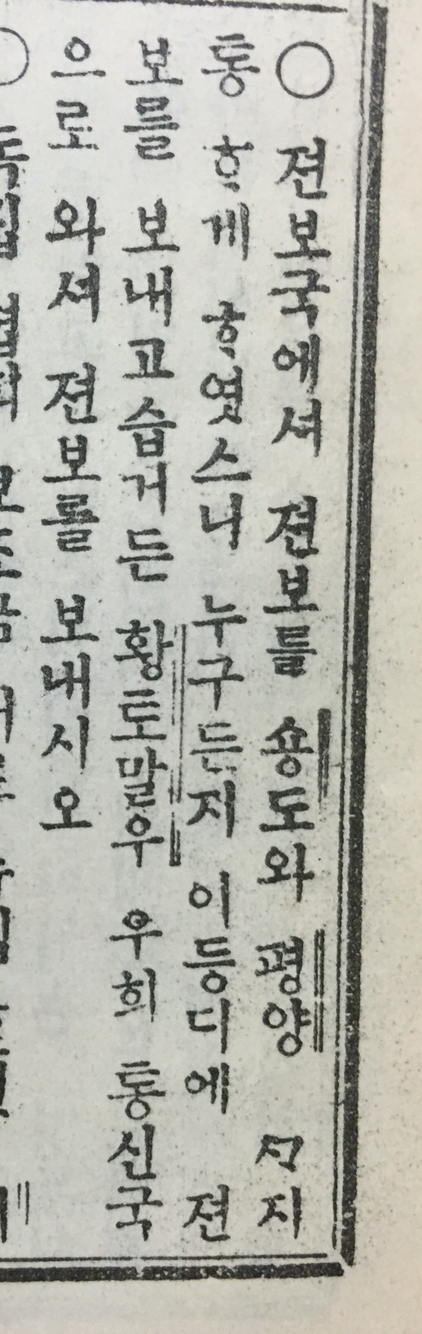 ○ 젼보국에셔 젼보를 숑도와 평양 ᄭᆞ지
통 ᄒᆞ게 ᄒᆞ엿스니 누구든지 이등디에 젼
보를 보내고 습거든 황토말우 우희 통신국
으로 와셔 젼보를 보내시오